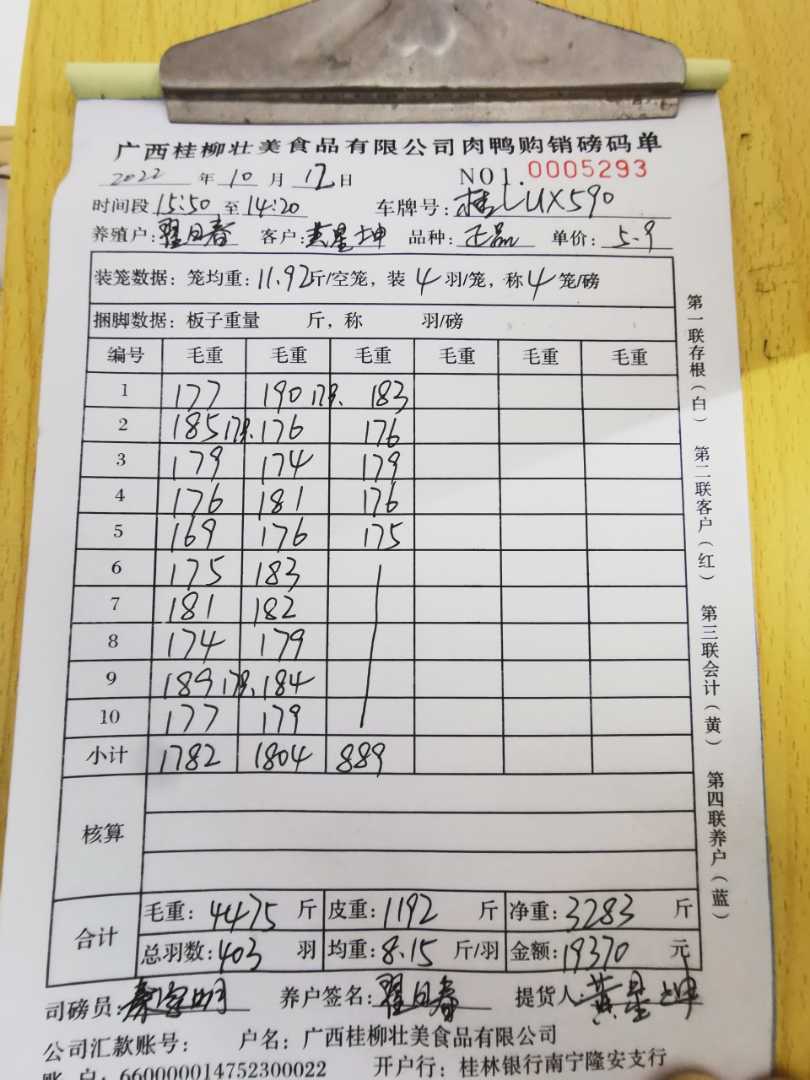 广西桂柳壮美食品有限公司肉鸭购销磅码单
2022 年 10 月 12 日 NO1. 0005293
时间段 15:50 至 14:20 车牌号: 桂LUX590
养殖户: 翟日春 客户: 黄星坤 品种: 正品 单价: 5.9
装笼数据: 笼均重: 11.92斤/空笼, 装 4 羽/笼, 称 4 笼/磅
捆脚数据: 板子重量 斤, 称 羽/磅
编号 毛重 毛重 毛重 毛重 毛重 毛重
1 177 190 183
2 185 176 176
3 179 174 179
4 176 181 176
5 169 176 175
6 175 183
7 181 182
8 174 179
9 189 184
10 177 179
小计 1782 1804 889
核算
合计
毛重: 4475 斤 皮重: 1192 斤 净重: 3283 斤
总羽数: 403 羽 均重: 8.15 斤/羽 金额: 19370 元
司磅员: 养户签名: 翟日春 提货人: 黄星坤
公司汇款账号: 户名: 广西桂柳壮美食品有限公司
账 户: 660000014752300022 开户行: 桂林银行南宁隆安支行
第一联存根(白) 第二联客户(红) 第三联会计(黄) 第四联养户(蓝)